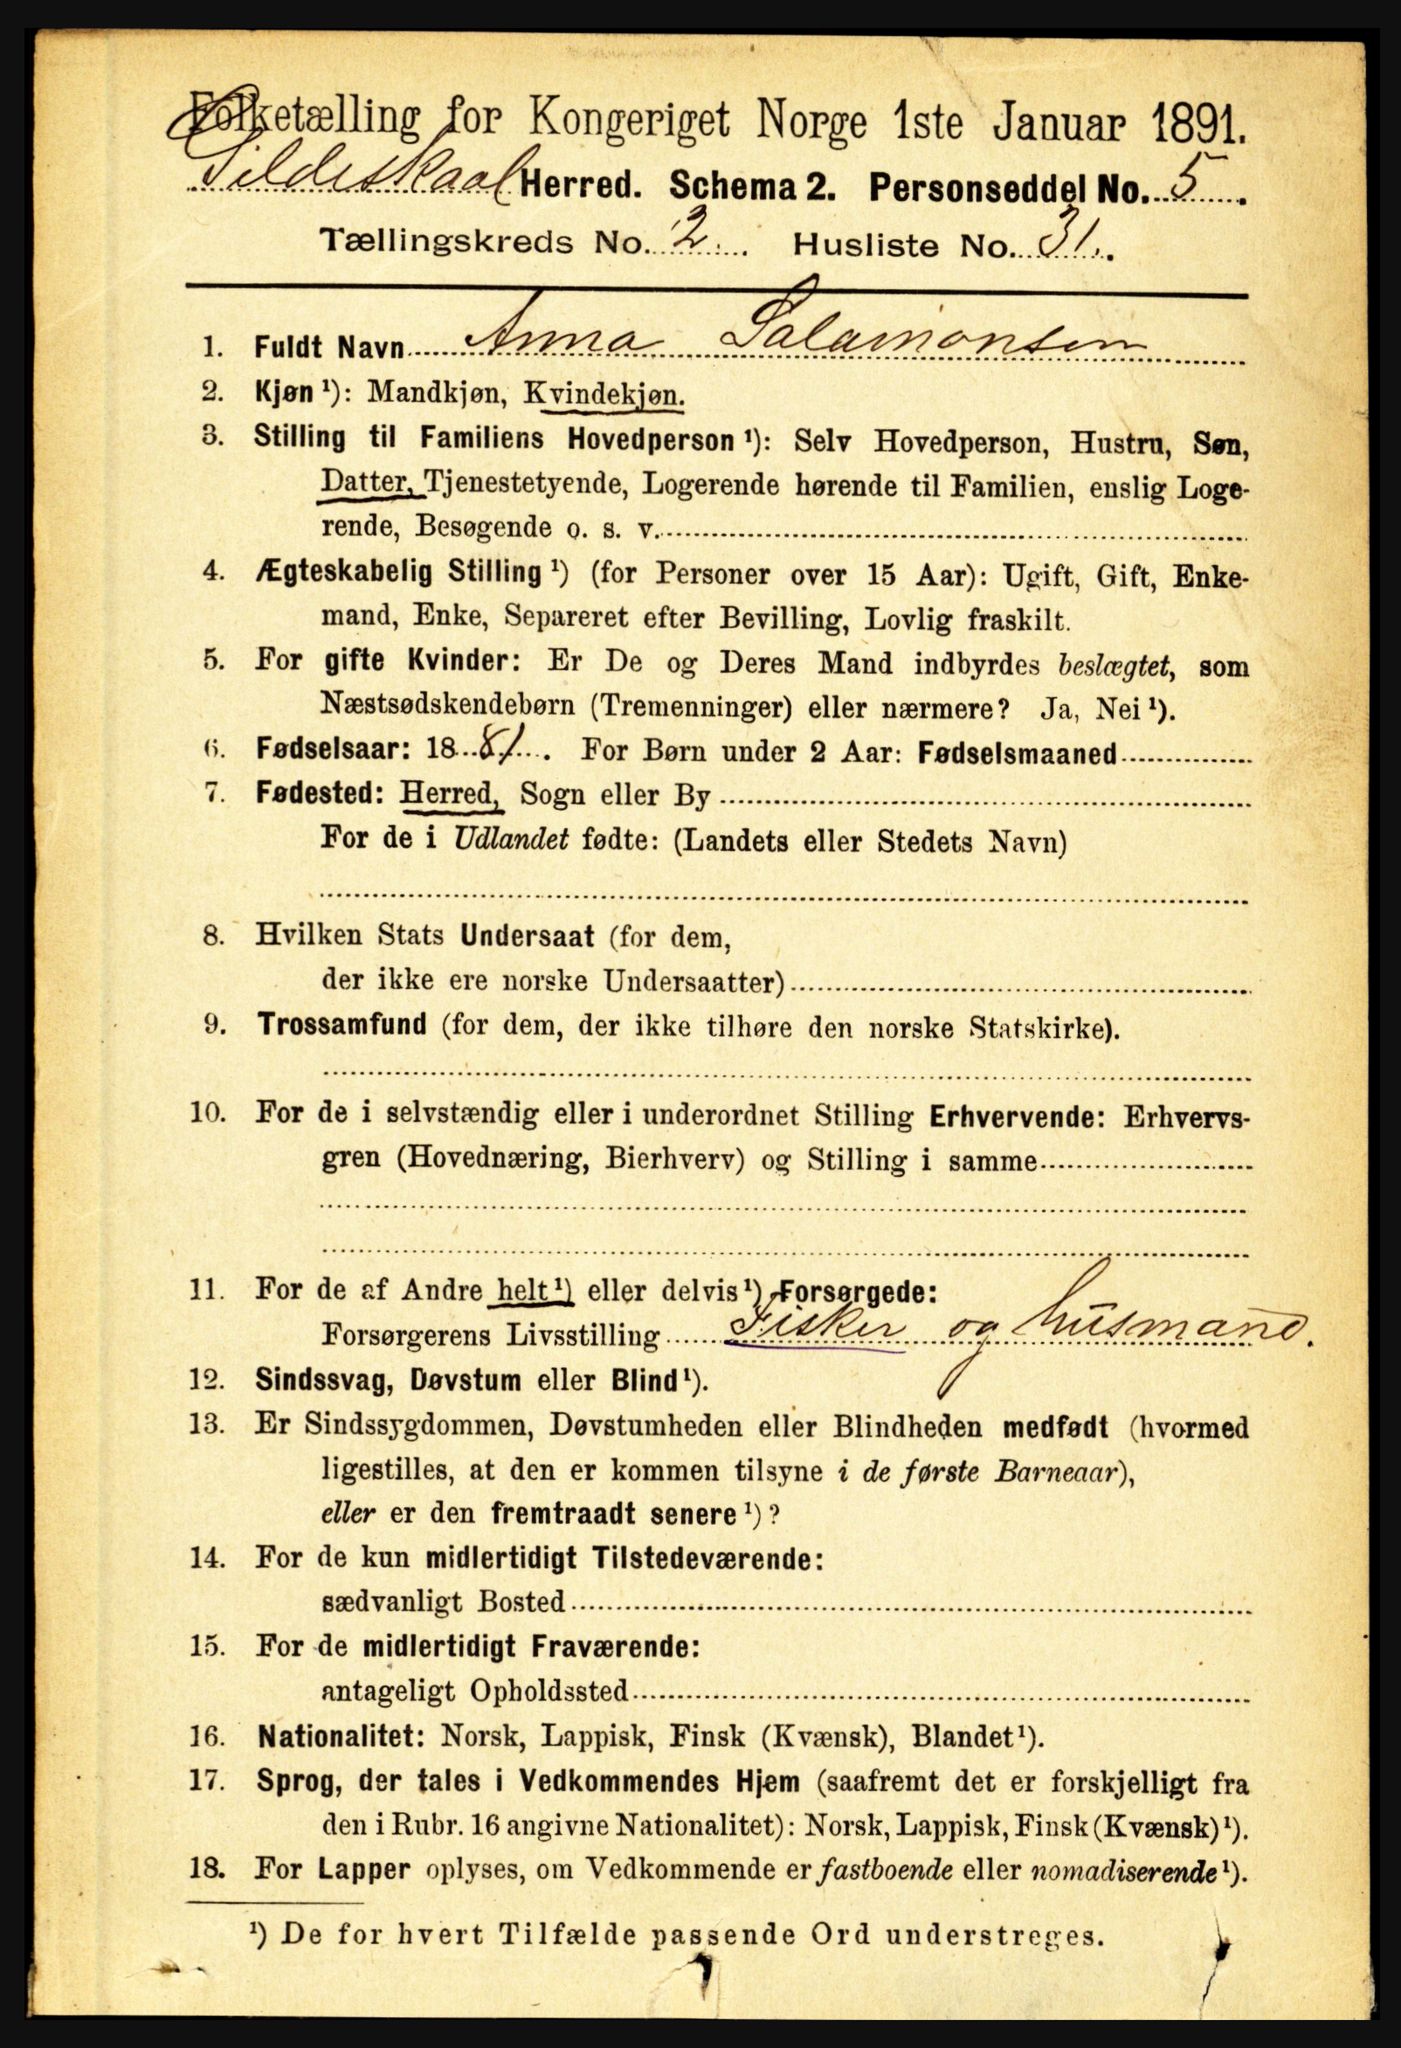 Folketælling for Kongeriget Norge 1ste Januar 1891.
Gildeskaal Herred. Schema 2. Personseddel No. 5.
Tællingskreds No. 2. Husliste No. 31.
1. Fuldt Navn Anna Salamonsen
2. Kjøn ¹): Mandkjøn, Kvindekjøn.
3. Stilling til Familiens Hovedperson ¹): Selv Hovedperson, Hustru, Søn,
Datter, Tjenestetyende, Logerende hørende til Familien, enslig Loge-
rende, Besøgende o. s. v.
4. Ægteskabelig Stilling ¹) (for Personer over 15 Aar): Ugift, Gift, Enke-
mand, Enke, Separeret efter Bevilling, Lovlig fraskilt.
5. For gifte Kvinder: Er De og Deres Mand indbyrdes beslægtet, som
Næstsødskendebørn (Tremenninger) eller nærmere? Ja, Nei ¹).
6. Fødselsaar: 1881. For Børn under 2 Aar: Fødselsmaaned
7. Fødested: Herred, Sogn eller By
For de i Udlandet fødte: (Landets eller Stedets Navn)
8. Hvilken Stats Undersaat (for dem,
der ikke ere norske Undersaatter)
9. Trossamfund (for dem, der ikke tilhøre den norske Statskirke).
10. For de i selvstændig eller i underordnet Stilling Erhvervende: Erhvervs-
gren (Hovednæring, Bierhverv) og Stilling i samme
11. For de af Andre helt ¹) eller delvis ¹) Forsørgede:
Forsørgerens Livsstilling Fisker og husmand.
12. Sindssvag, Døvstum eller Blind ¹).
13. Er Sindssygdommen, Døvstumheden eller Blindheden medfødt (hvormed
ligestilles, at den er kommen tilsyne i de første Barneaar),
eller er den fremtraadt senere ¹)?
14. For de kun midlertidigt Tilstedeværende:
sædvanligt Bosted
15. For de midlertidigt Fraværende:
antageligt Opholdssted
16. Nationalitet: Norsk, Lappisk, Finsk (Kvænsk), Blandet ¹).
17. Sprog, der tales i Vedkommendes Hjem (saafremt det er forskjelligt fra
den i Rubr. 16 angivne Nationalitet): Norsk, Lappisk, Finsk (Kvænsk) ¹).
18. For Lapper oplyses, om Vedkommende er fastboende eller nomadiserende ¹).
¹) De for hvert Tilfælde passende Ord understreges.